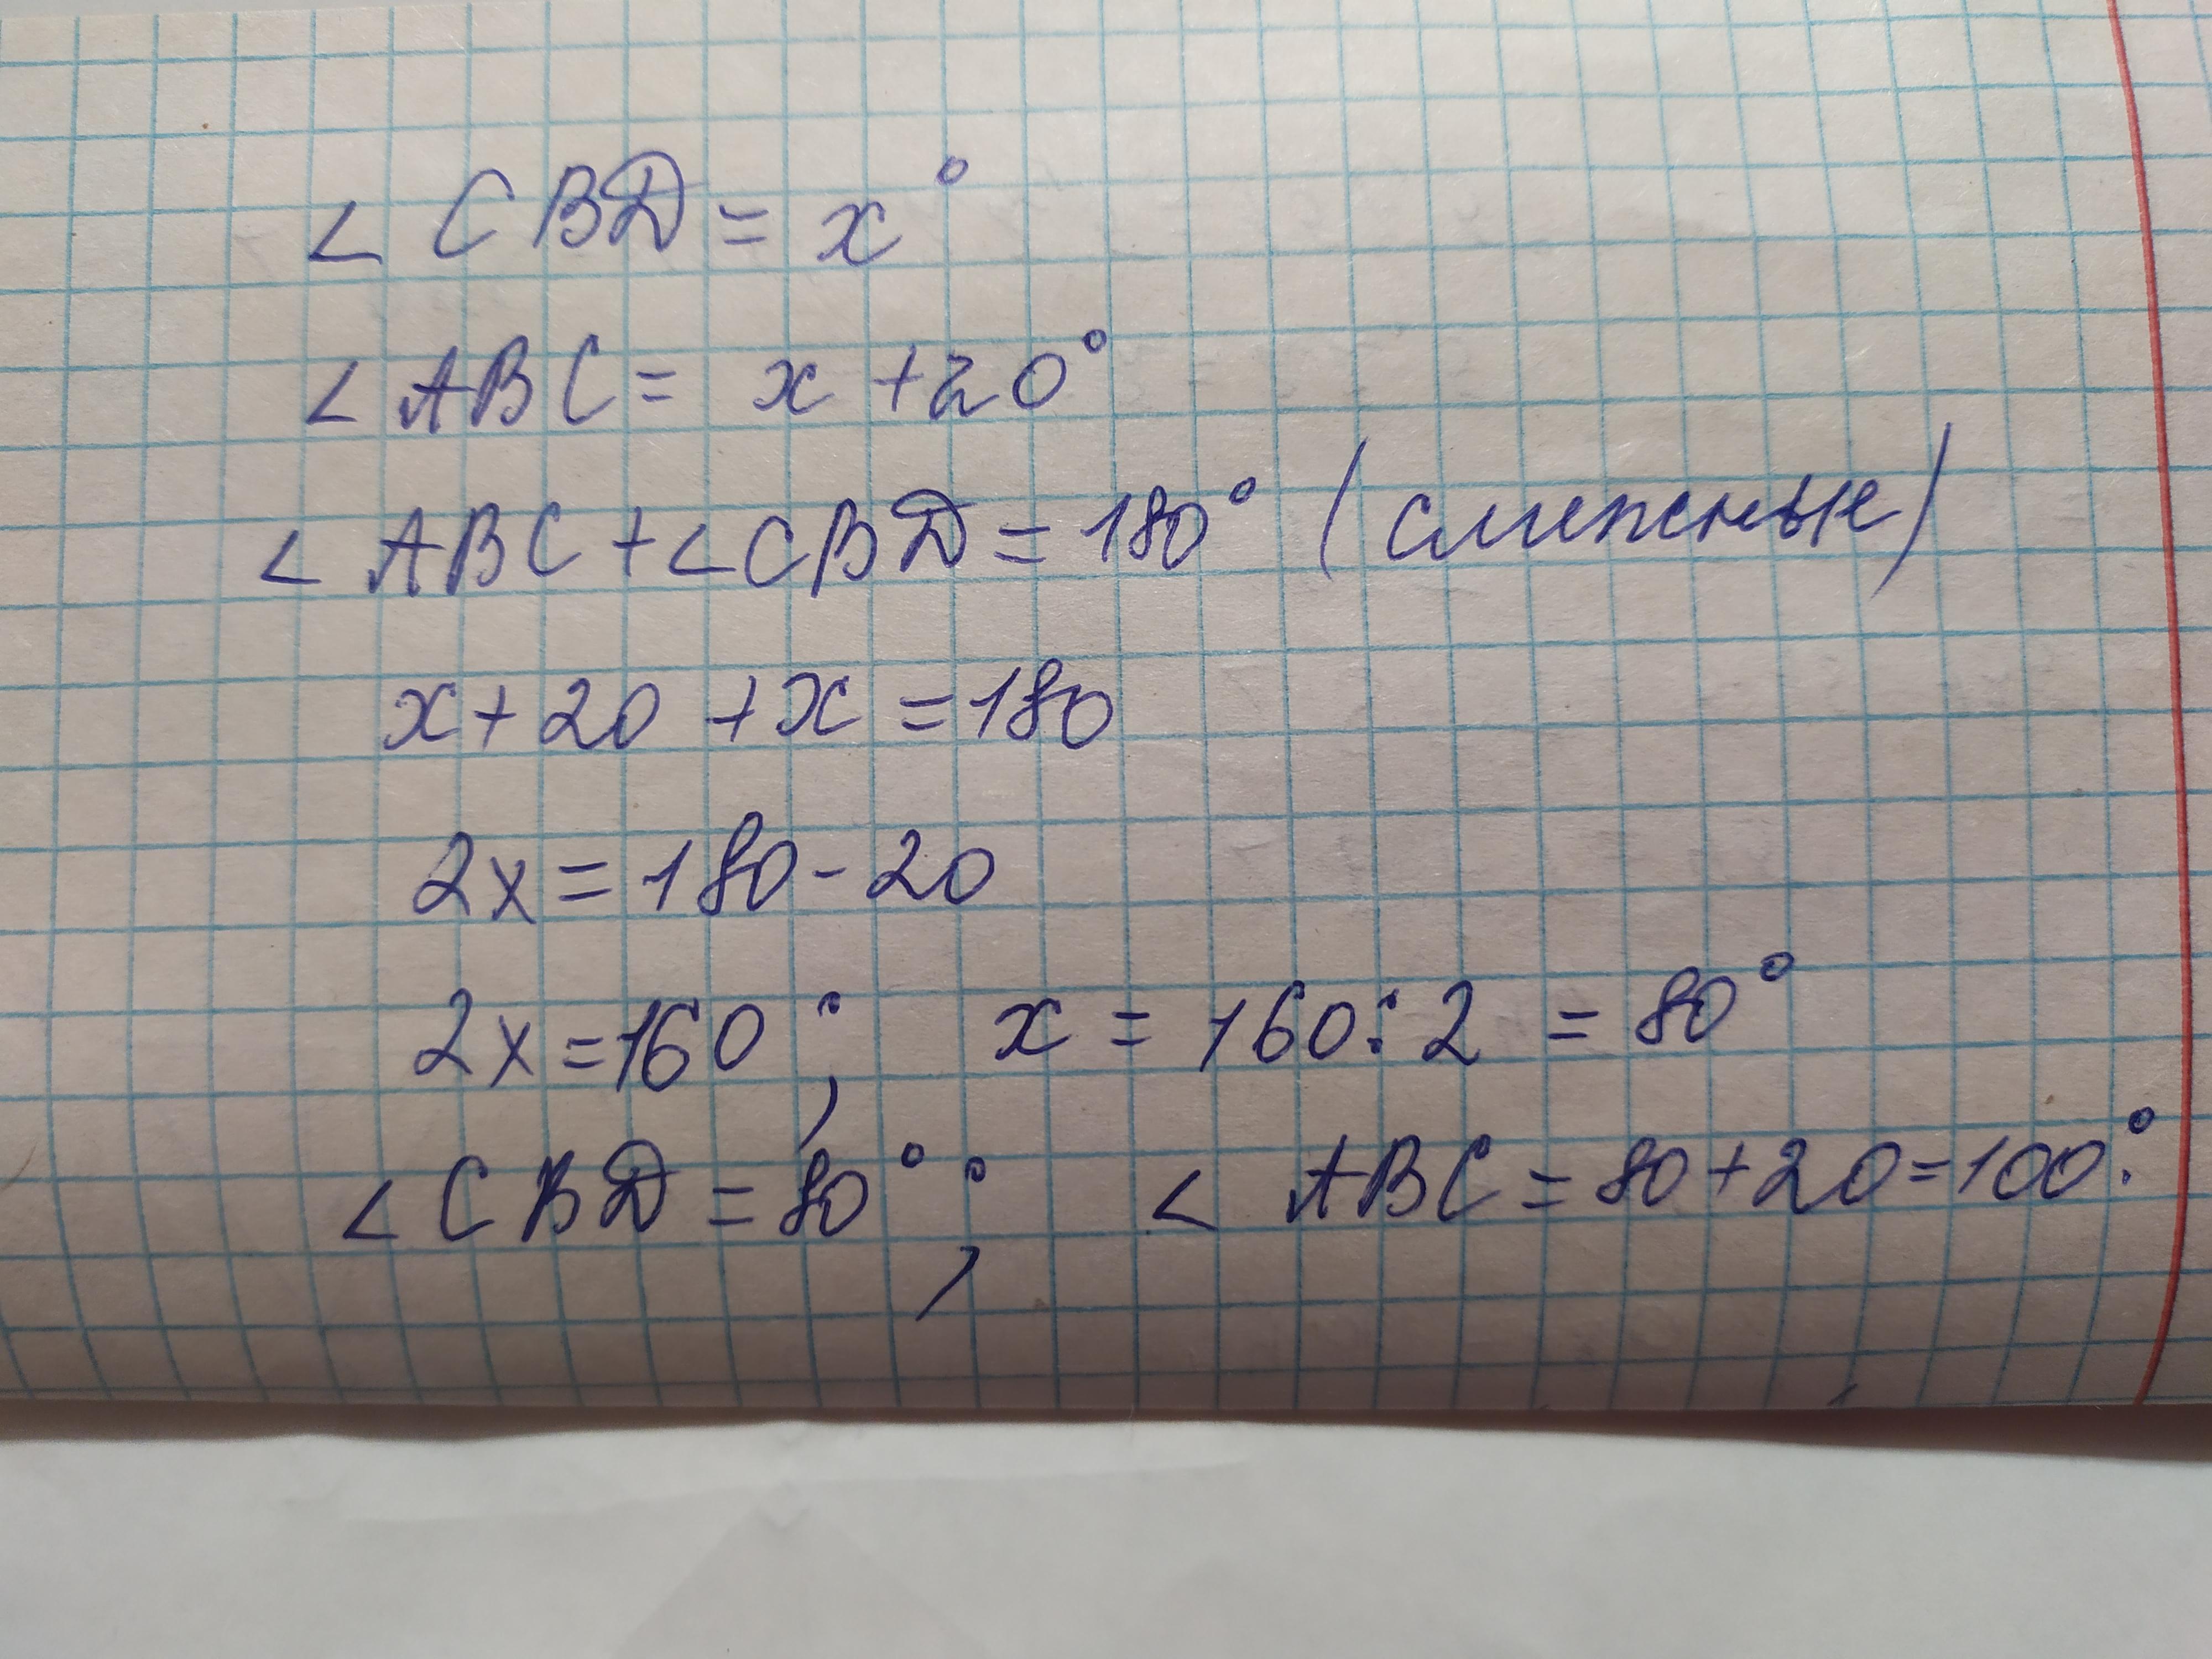 ∠CBD = x°
∠ABC = x + 20°
∠ABC + ∠CBD = 180° (смежные)
x + 20 + x = 180
2x = 180 - 20
2x = 160; x = 160 : 2 = 80°
∠CBD = 80°; ∠ABC = 80 + 20 = 100°.